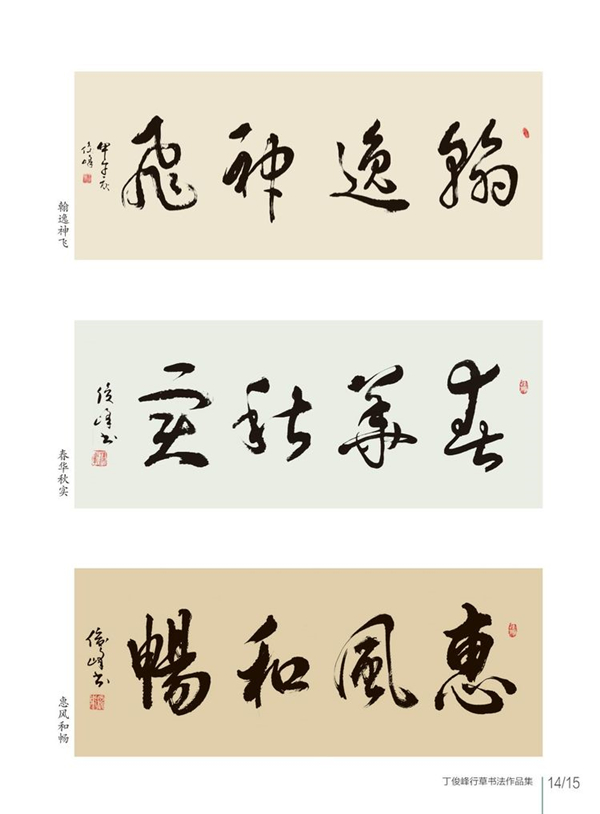 翰逸神飛
甲午秋
俊峰
翰逸神飞
春華秋实
俊峰书
春华秋实
惠風和暢
俊峰书
惠风和畅
丁俊峰行草书法作品集
14/15